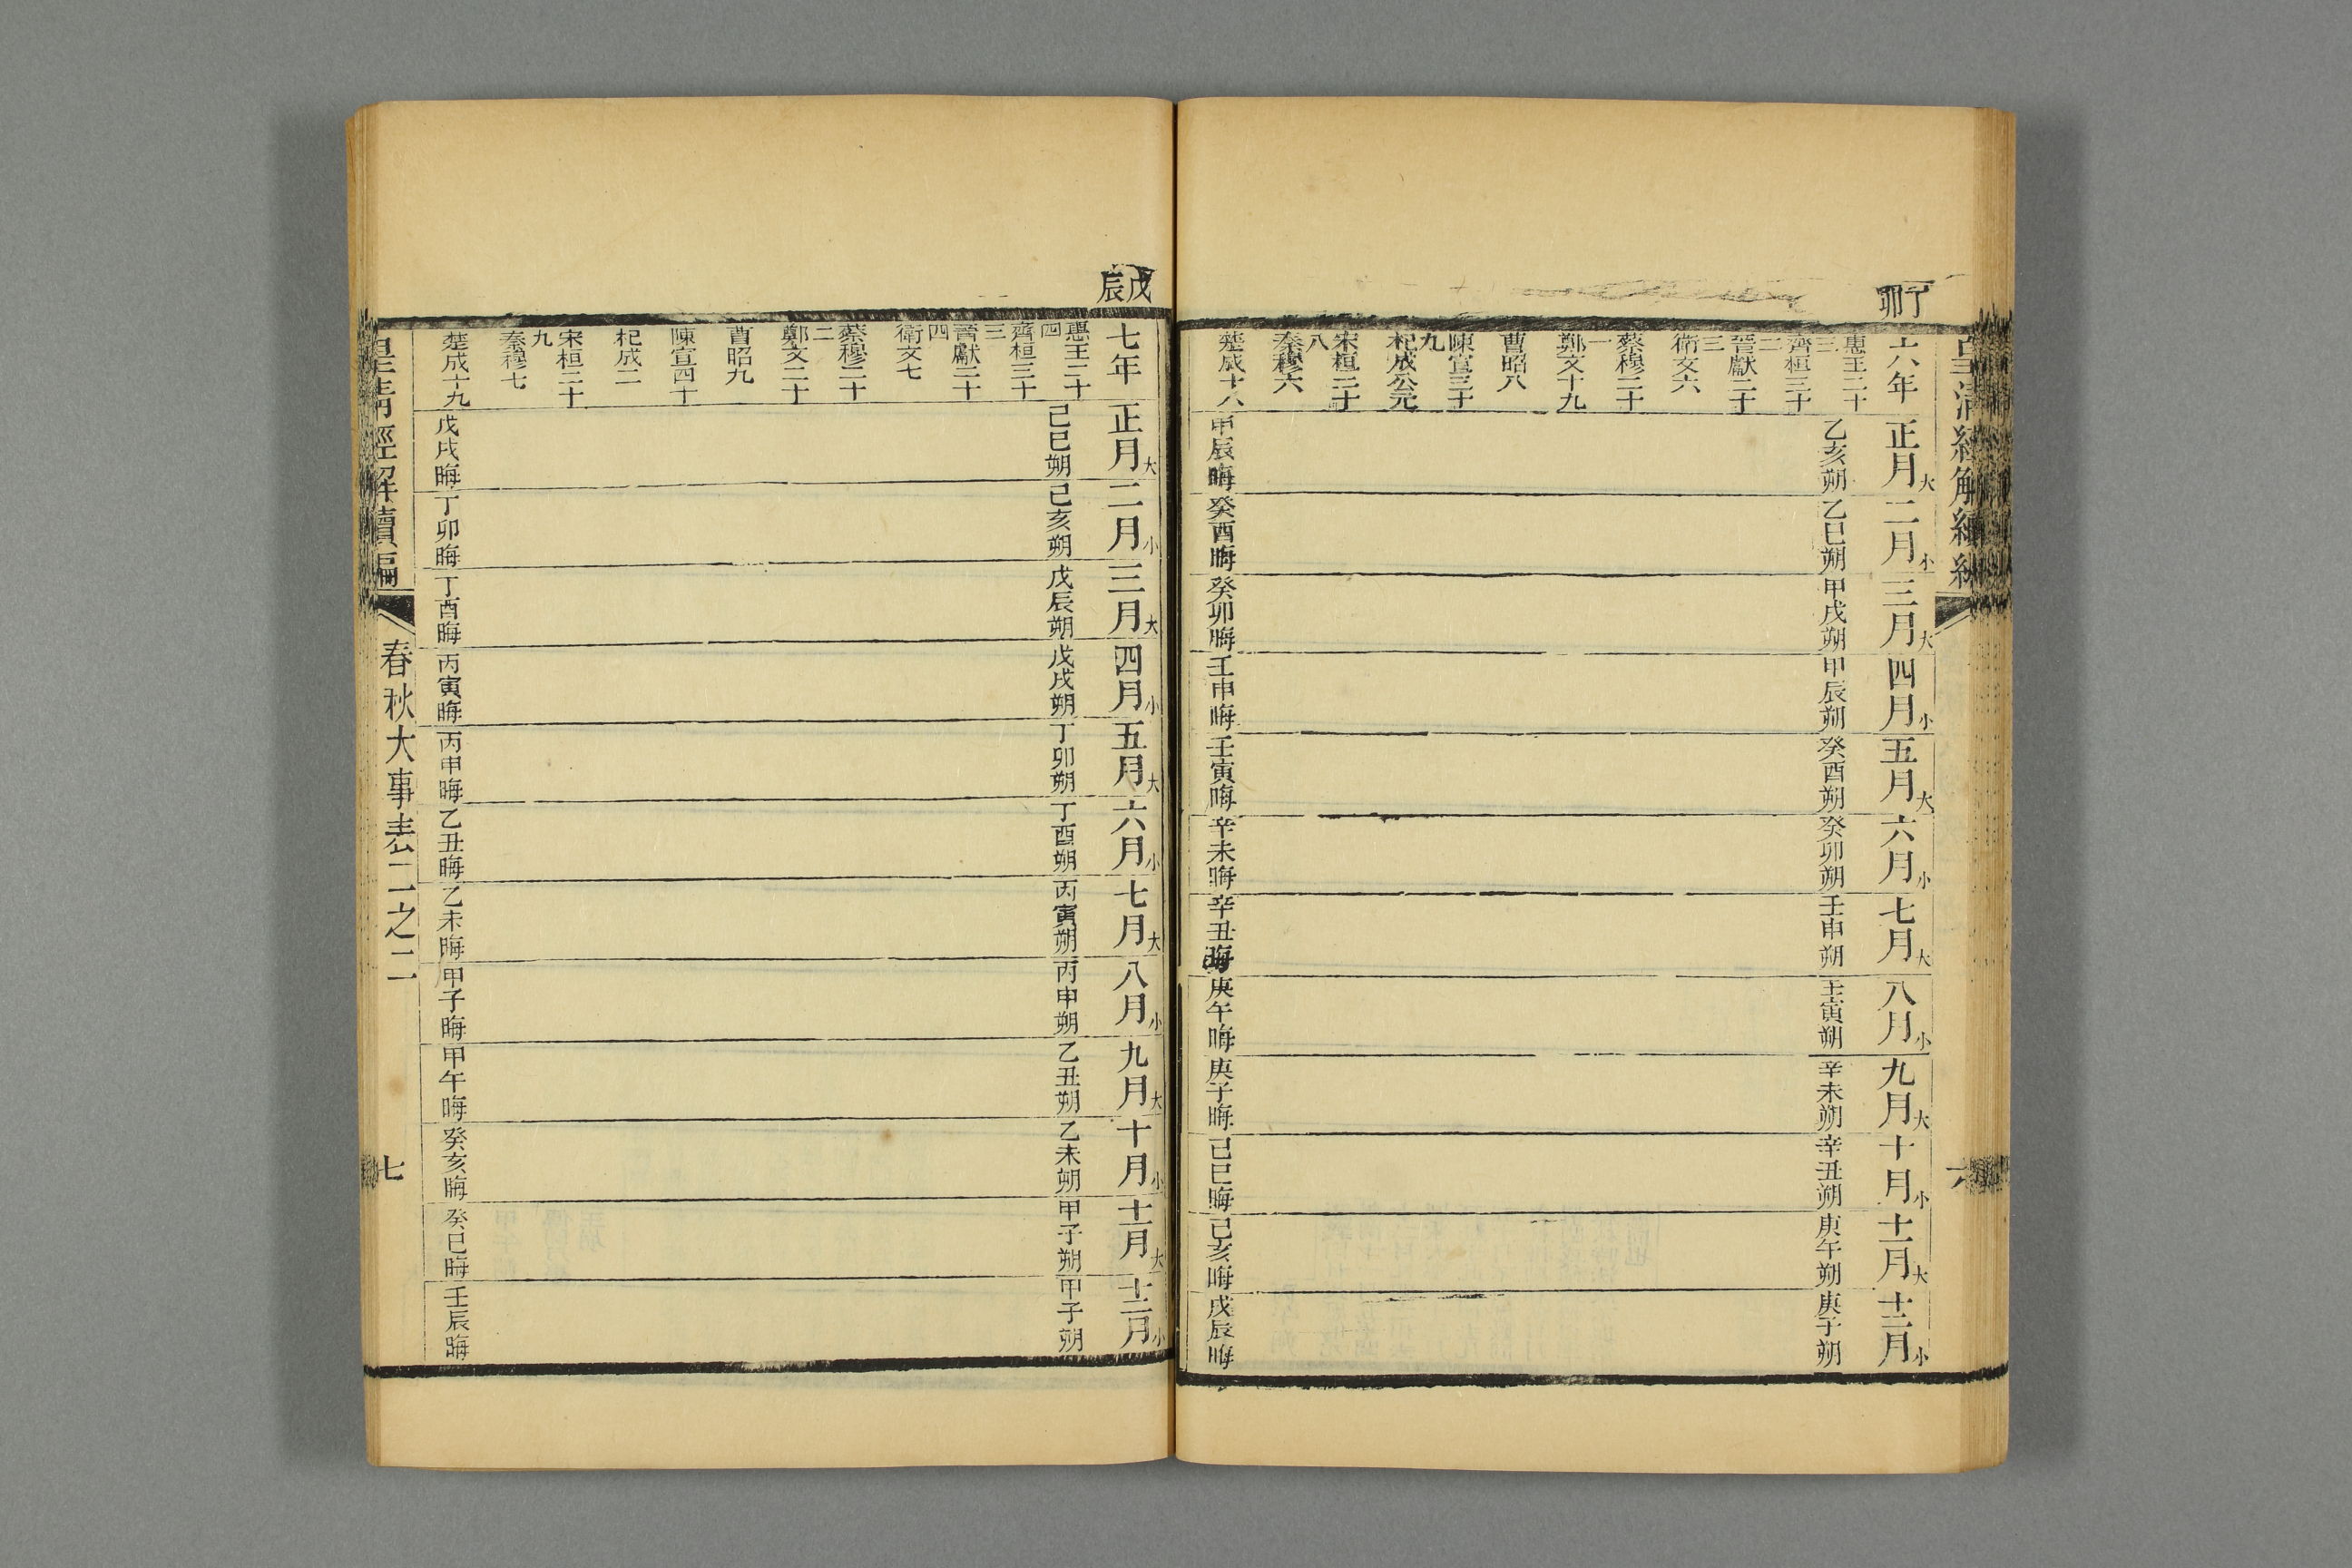 皇清經解續編
六
丁卯
六年
惠王二十三
齊桓三十二
晉獻二十三
衛文六
蔡穆二十一
鄭文十九
曹昭八
陳宣三十九
杞成公元
宋桓二十八
秦穆六
楚成十八
正月大
乙亥朔
甲辰晦
二月小
乙巳朔
癸酉晦
三月大
甲戌朔
癸卯晦
四月小
甲辰朔
壬申晦
五月大
癸酉朔
壬寅晦
六月小
癸卯朔
辛未晦
七月大
壬申朔
辛丑晦
八月小
壬寅朔
庚午晦
九月大
辛未朔
庚子晦
十月小
辛丑朔
己巳晦
十一月大
庚午朔
己亥晦
十二月小
庚子朔
戊辰晦
戊辰
七年
惠王二十四
齊桓三十三
晉獻二十四
衛文七
蔡穆二十二
鄭文二十
曹昭九
陳宣四十
杞成二
宋桓二十九
秦穆七
楚成十九
正月大
己巳朔
戊戌晦
二月小
己亥朔
丁卯晦
三月大
戊辰朔
丁酉晦
四月小
戊戌朔
丙寅晦
五月大
丁卯朔
丙申晦
六月小
丁酉朔
乙丑晦
七月大
丙寅朔
乙未晦
八月小
丙申朔
甲子晦
九月大
乙丑朔
甲午晦
十月小
乙未朔
癸亥晦
十一月大
甲子朔
癸巳晦
十二月小
甲子朔
壬辰晦
皇清經解續編
春秋大事表二之二
七